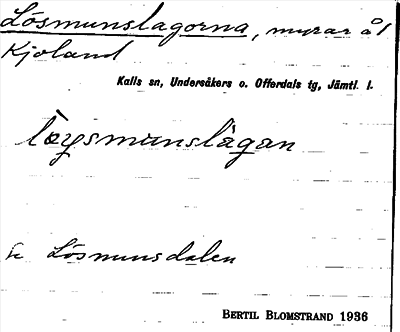 Lösmunslagorna, myrar å l
Kjoland
Kalls sn, Undersåkers o. Offerdals tg, Jämtl. l.
lòysmunslágan
se Lösmunsdalen
BERTIL BLOMSTRAND 1936